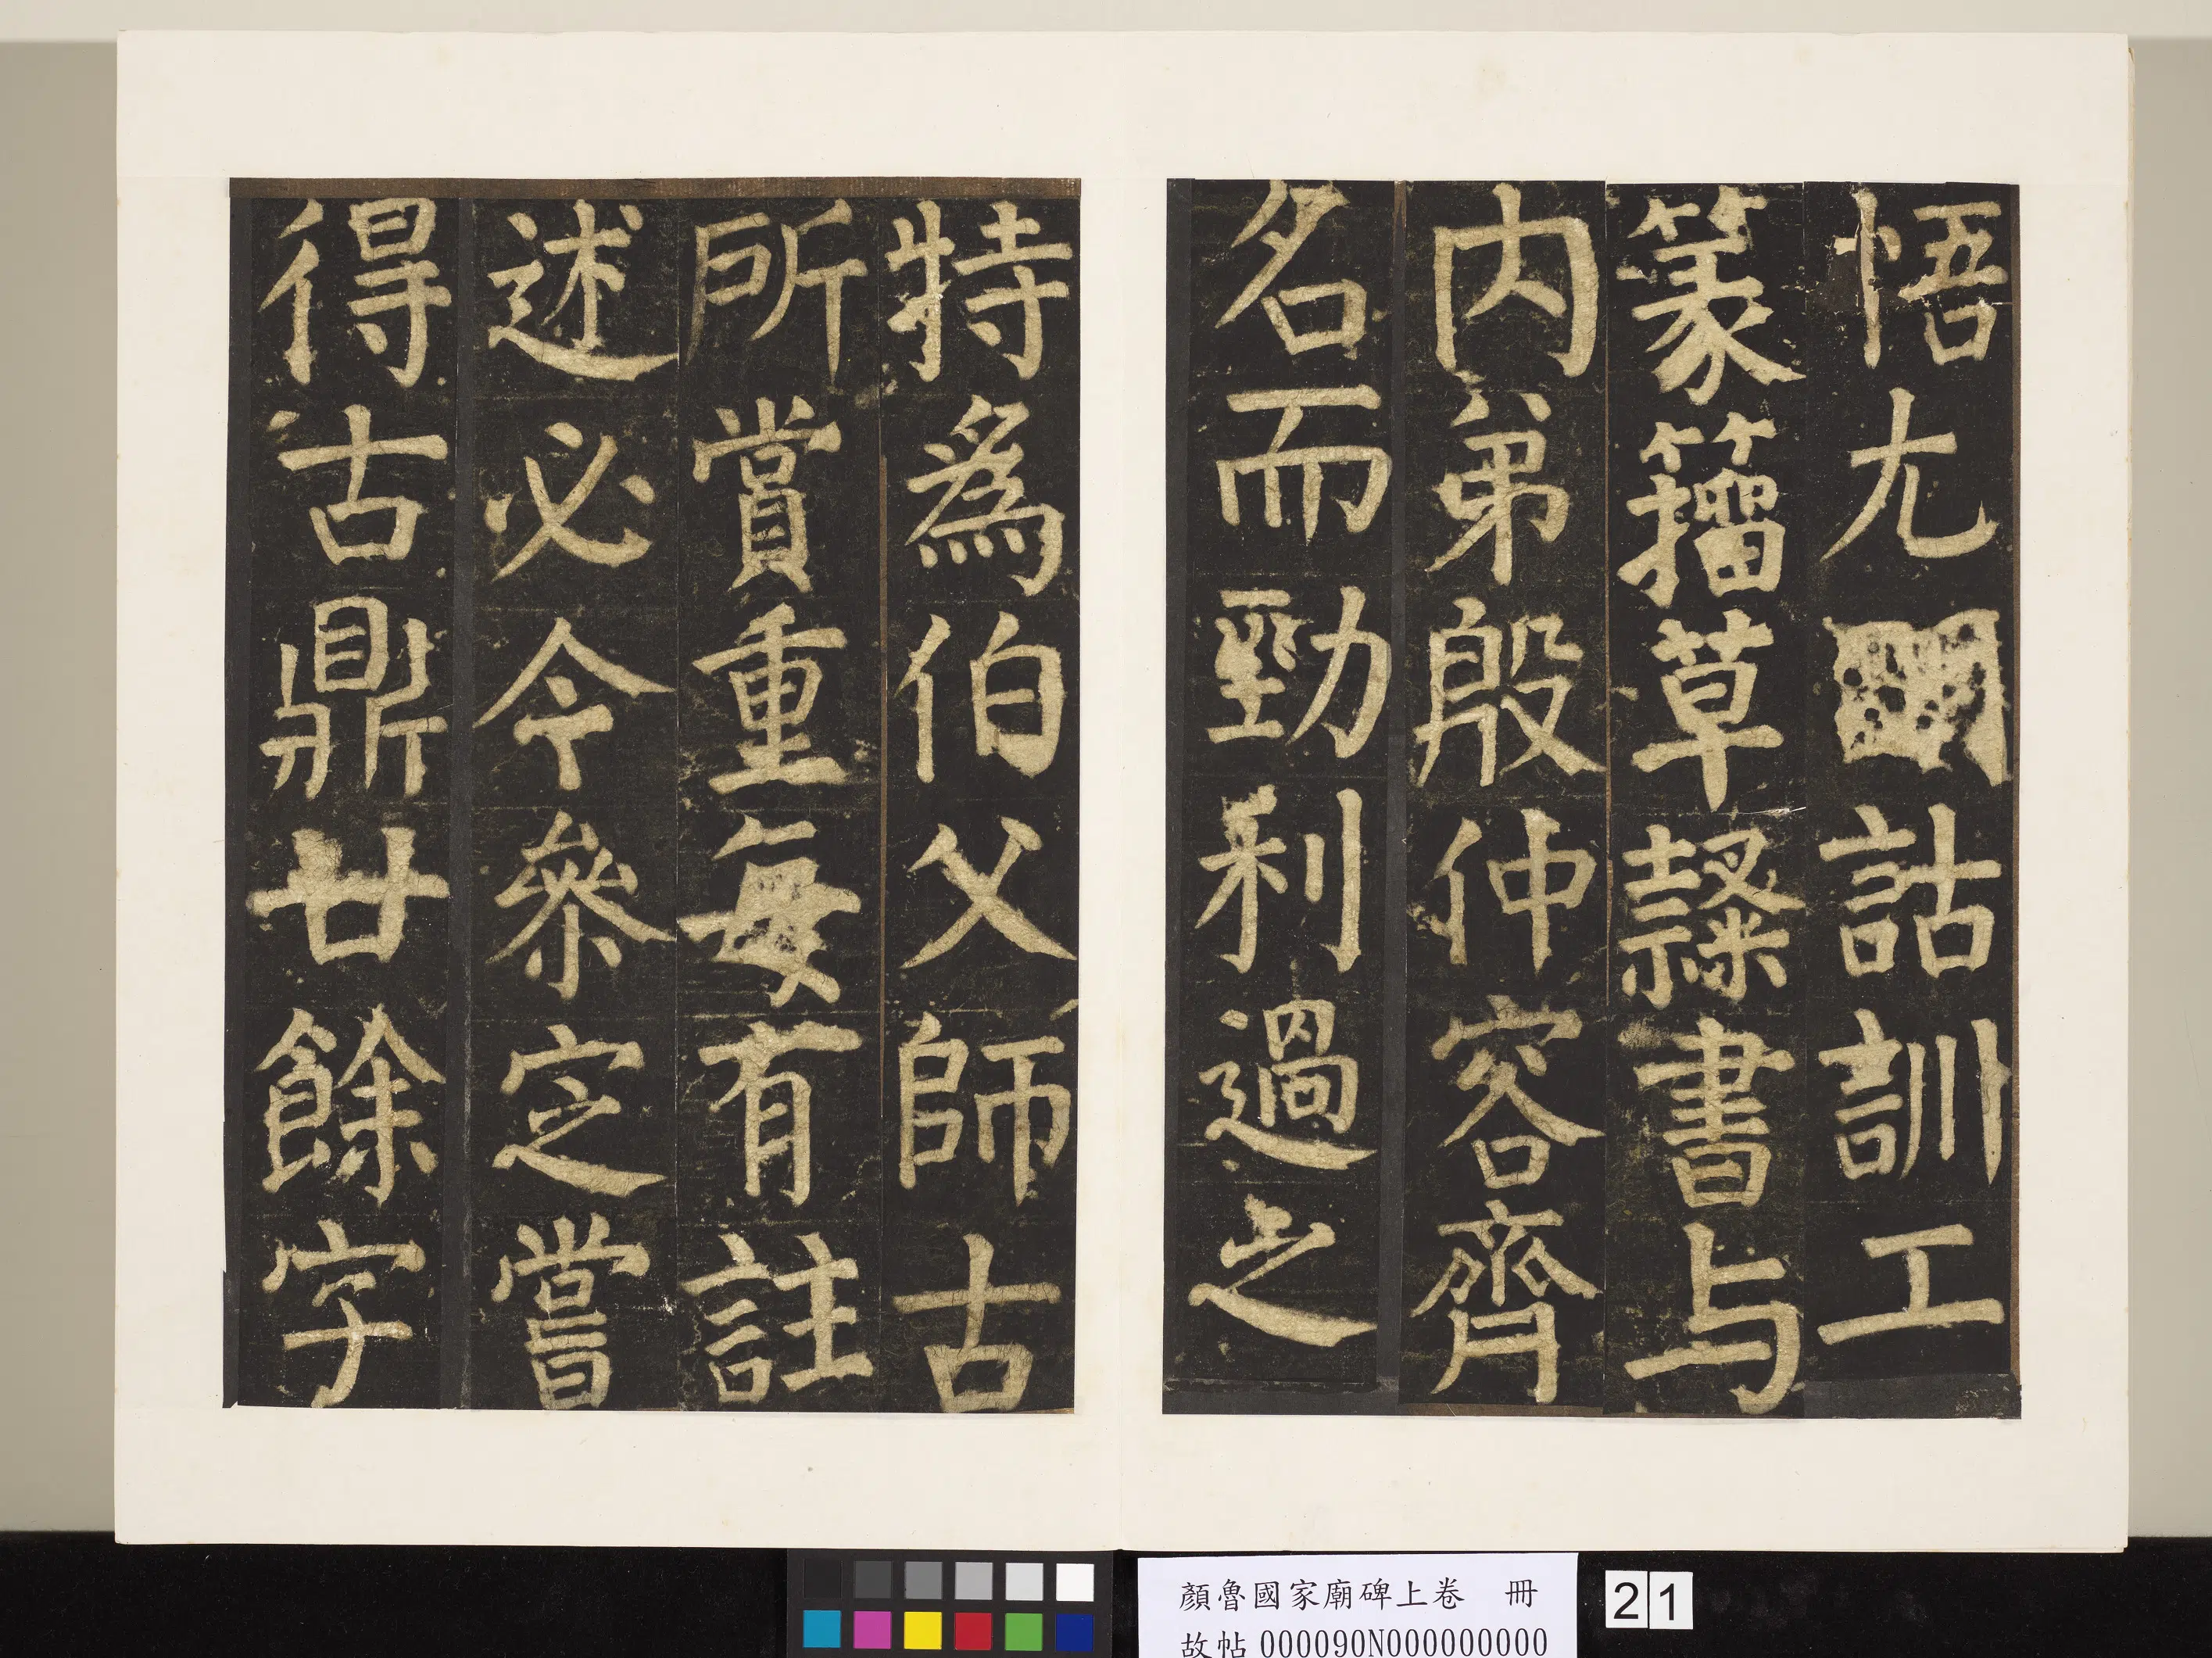 悟尤明詁訓工
篆籒草隸書与
内弟殷仲容齊
名而勁利過之
特爲伯父師古
所賞重每有註
述必令叅定嘗
得古鼎廿餘字
顏魯國家廟碑上卷 冊
故帖000090N000000000
21